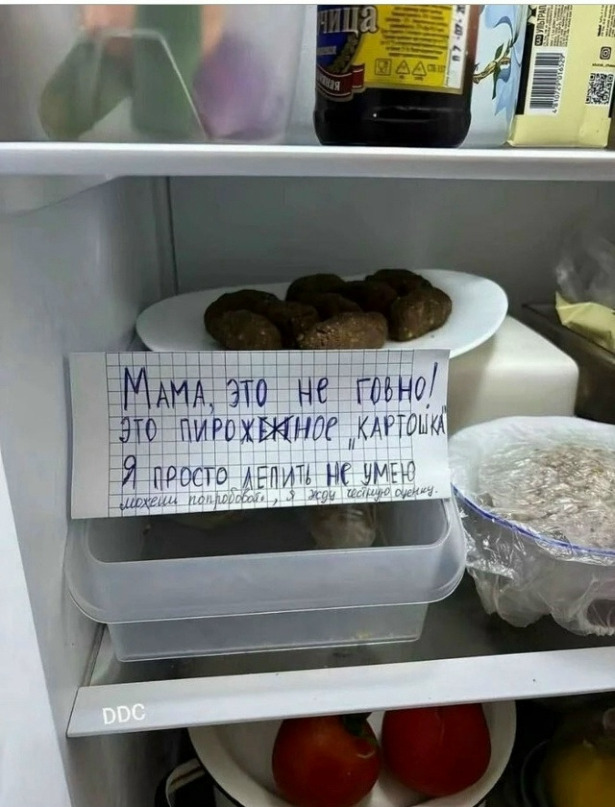 чица
МАМА, ЭТО НЕ ГОВНО!
ЭТО ПИРОЖЕНОЕ „КАРТОШКА"
Я ПРОСТО ЛЕПИТЬ НЕ УМЕЮ
можеш попробовать, я жду честную оценку.
DDC